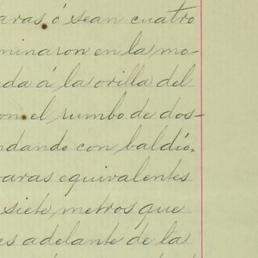 aras, ó sean cuatro
minaron en la mo-
da á la orilla del
on el rumbo de dos-
ndando con baldío,
varas equivalentes
siete metros que
es adelante de la